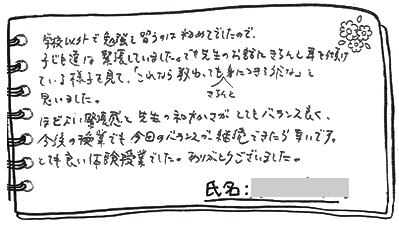 学校以外で勉強を習うのは初めてでしたので、
子ども達は緊張していました。でも先生のお話にきちんと耳を傾け
ている様子を見て、「これなら教わっても身につきそうだな」と
きちんと
思いました。
ほどよい緊張感と先生の和やかさがとてもバランス良く、
今後の授業でも今回のバランスが継続できたら幸いです。
とても良い体験授業でした。ありがとうございました。
氏名: